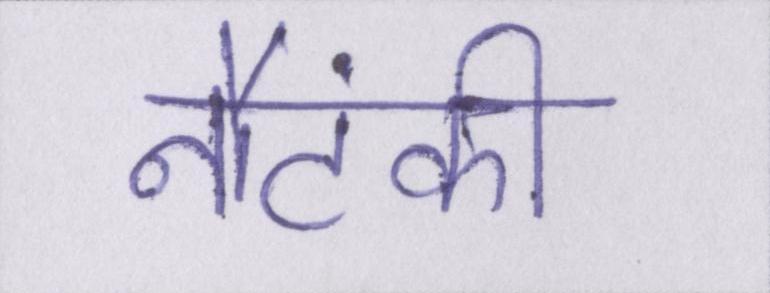 नौटंकी